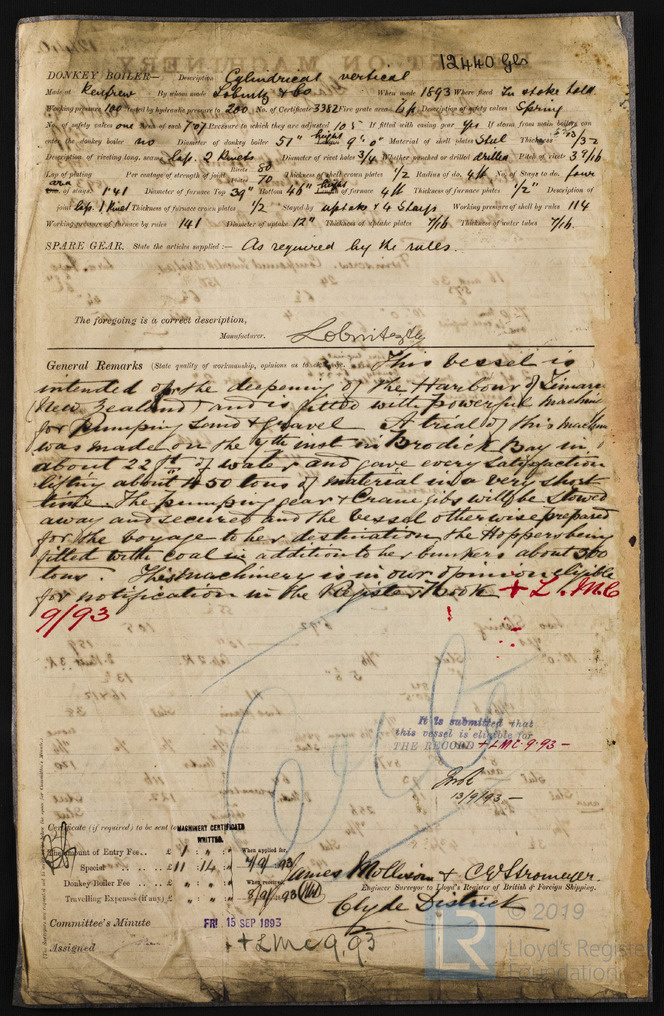 12440 Gls
DONKEY BOILER— Description Cylindrical vertical
Made at Renfrew By whom made Lobnitz & Co When made 1893 Where fixed In stoke hold
Working pressure 100 tested by hydraulic pressure to 200 No. of Certificate 3382 Fire grate area Description of safety valves Spring
No. of safety valves one Area of each 7.07 Pressure to which they are adjusted 105 If fitted with easing gear yes If steam from main boilers can
enter the donkey boiler no Diameter of donkey boiler 57" height 9' 0" Material of shell plates Steel Thickness 13/32
Description of riveting long. seams Lap. 2 Rivets Diameter of rivet holes 3/4 Whether punched or drilled drilled Pitch of rivets 3 9/16
Lap of plating Per centage of strength of joint Rivets 80 Plates 70 Thickness of shell crown plates 1/2 Radius of do. 4ft No. of Stays to do. four
area of stays. 1.41 Diameter of furnace Top 39" Bottom 46" height of furnace 4ft Thickness of furnace plates 1/2" Description of
joint Lap. 1 Rivet Thickness of furnace crown plates 1/2 Stayed by uptake & 4 Stays Working pressure of shell by rules 114
Working pressure of furnace by rules 141 Diameter of uptake 12" Thickness of uptake plates 7/16 Thickness of water tubes 7/16.
SPARE GEAR. State the articles supplied:— As required by the rules.
The foregoing is a correct description,
Manufacturer. Lobnitz & Co
General Remarks (State quality of workmanship, opinions as to class, &c. This vessel is
intended for the deepening of the Harbour of Timaru
(New Zealand) and is fitted with powerful machinery
for Pumping Sand & Gravel A trial of this machinery
was made on the 7th inst in Brodick Bay in
about 22 ft of water and gave every satisfaction
lifting about 450 tons of material in a very short
time. The pumping gear & Crane jibs will be stowed
away and secured and the vessel otherwise prepared
for the voyage to her destination, the Hoppers being
fitted with coal in addition to her bunkers about 500
tons. This machinery is in our opinion eligible
for notification in the Register Book + L.M.C
9/93
It is submitted that
this vessel is eligible for
THE RECORD + LMC 9.93 —
13/9/93 —
Certificate (if required) to be sent to
MACHINERY CERTIFICATE
WRITTEN.
The amount of Entry Fee . . £ 1 : " : " When applied for,
Special . . £ 11 : 14 : " 7/9/93
Donkey Boiler Fee . . £ " : " : " When received,
Travelling Expenses (if any) £ " : " : " 8/9/93
James Mollison & C E Stromeyer.
Engineer Surveyor to Lloyd's Register of British & Foreign Shipping.
Clyde District
Committee's Minute FRI 15 SEP 1893
Assigned + LMC 9.93
© 2019
LR
Lloyd's Register
Foundation